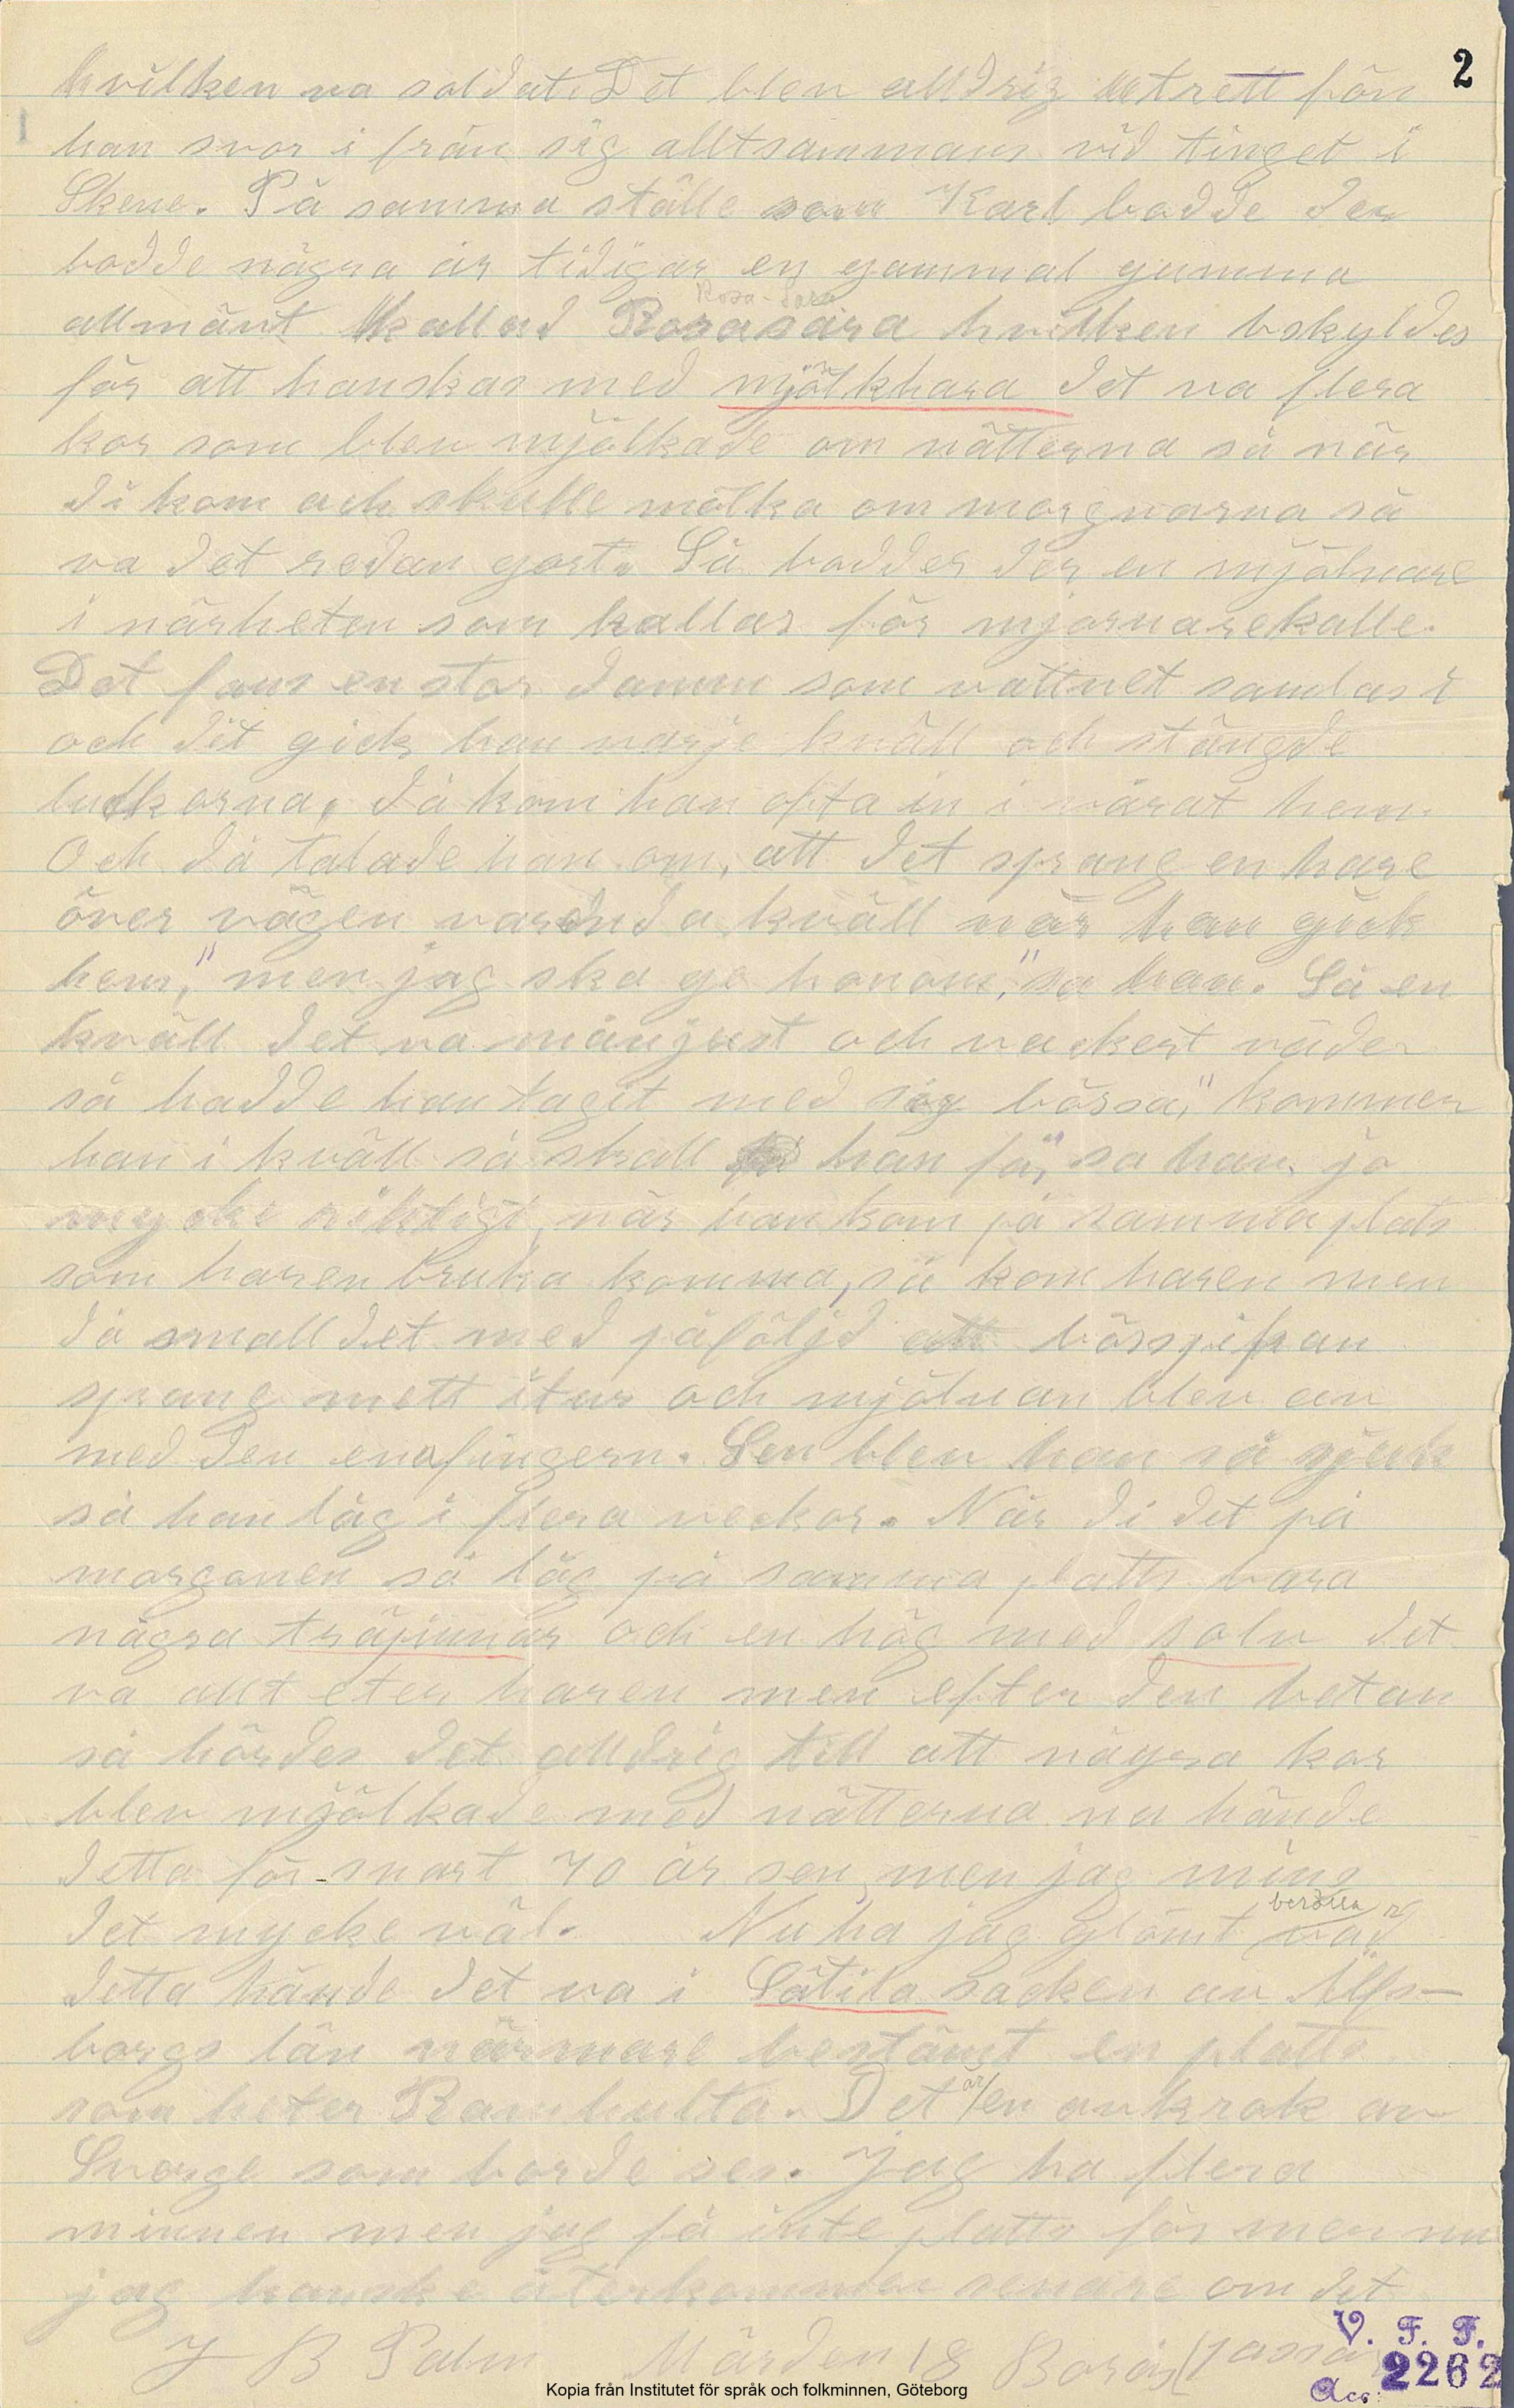 2
hvilken va soldat. Det blev alldrig utrett för
han svor i från sig alltsammans vid tinget i
Skene. På samma ställe som Karl bodde der
bodde några år tidigar en gammal gumma
Rosa-Sara
allmänt kallad Rosasara hvilken bskyldes
för att hanskas med mjölkhara det va flera
kor som blev mjölkade om nätterna så när
di kom och skulle mölka om morgnarna så
va det redan gort. Så boddes der en mjölnare
i närheten som kallas för mjornarekalle.
Det fans en stor damm som vattnet samlas i
och dit gick han varje kväll och stängde
luckorna, då kom han ofta in i vårat hem.
Och då talade han om, att det sprang en hare
över vägen varenda kväll när han gick
hem, "men jag ska ge honom," sa han. Så en
kväll det va månjust och vackert väder
så hadde han tagit med sig bössa, "kommer
han i kväll så skall han få," sa han. jo
mycke riktigt, när han kom på samma plats
som haren bruka komma, så kom haren men
då small det med påföljd att börspipan
sprang mett itur och mjölnan blev av
med den enafingern. Sen blev han så sjuk
så han låg i flera veckor. När di det på
morgonen så låg på samma platts bara
några träpinnar och en hög med solv det
va allt eter haren men efter den betan
så hördes det alldrig till att några kor
blev mjölkade med nätterna nu hände
detta för snart 70 år sen, men jag mins
det mycke väl. Nu ha jag glömt vad
detta hände det va i Sätila socken av Älfs-
borgs län närmare bestämt en platts
som heter Ramhulta. Det är en avkrok av
Sverge som borde ses. Jag ha flera
minnen men jag få inte platts för mer nu
jag kanske återkommer senare om det
J B Palm Mården 18 Borås
V. F. F.
Acc: 2262
Kopia från Institutet för språk och folkminnen, Göteborg